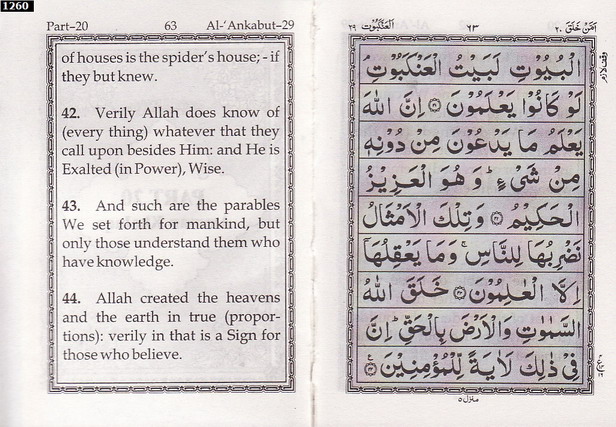 1260
Part–20 63 Al-'Ankabut–29
of houses is the spider's house; - if
they but knew.
42. Verily Allah does know of
(every thing) whatever that they
call upon besides Him: and He is
Exalted (in Power), Wise.
43. And such are the parables
We set forth for mankind, but
only those understand them who
have knowledge.
44. Allah created the heavens
and the earth in true (propor-
tions): verily in that is a Sign for
those who believe.
العنكبوت ٢٩ ٦٣ امن خلق ٢٠
الْبُيُوْتِ لَبَيْتُ الْعَنْكَبُوْتِ ۘ
لَوْ كَانُوْا يَعْلَمُوْنَ ۝٤١ اِنَّ اللّٰهَ
يَعْلَمُ مَا يَدْعُوْنَ مِنْ دُوْنِهٖ
مِنْ شَيْءٍ ؕ وَهُوَ الْعَزِيْزُ
الْحَكِيْمُ ۝٤٢ وَتِلْكَ الْاَمْثَالُ
نَضْرِبُهَا لِلنَّاسِ ۚ وَمَا يَعْقِلُهَاۤ
اِلَّا الْعٰلِمُوْنَ ۝٤٣ خَلَقَ اللّٰهُ
السَّمٰوٰتِ وَالْاَرْضَ بِالْحَقِّ ؕ اِنَّ
فِيْ ذٰلِكَ لَاٰيَةً لِّلْمُؤْمِنِيْنَ ۝٤٤
منزل ٥